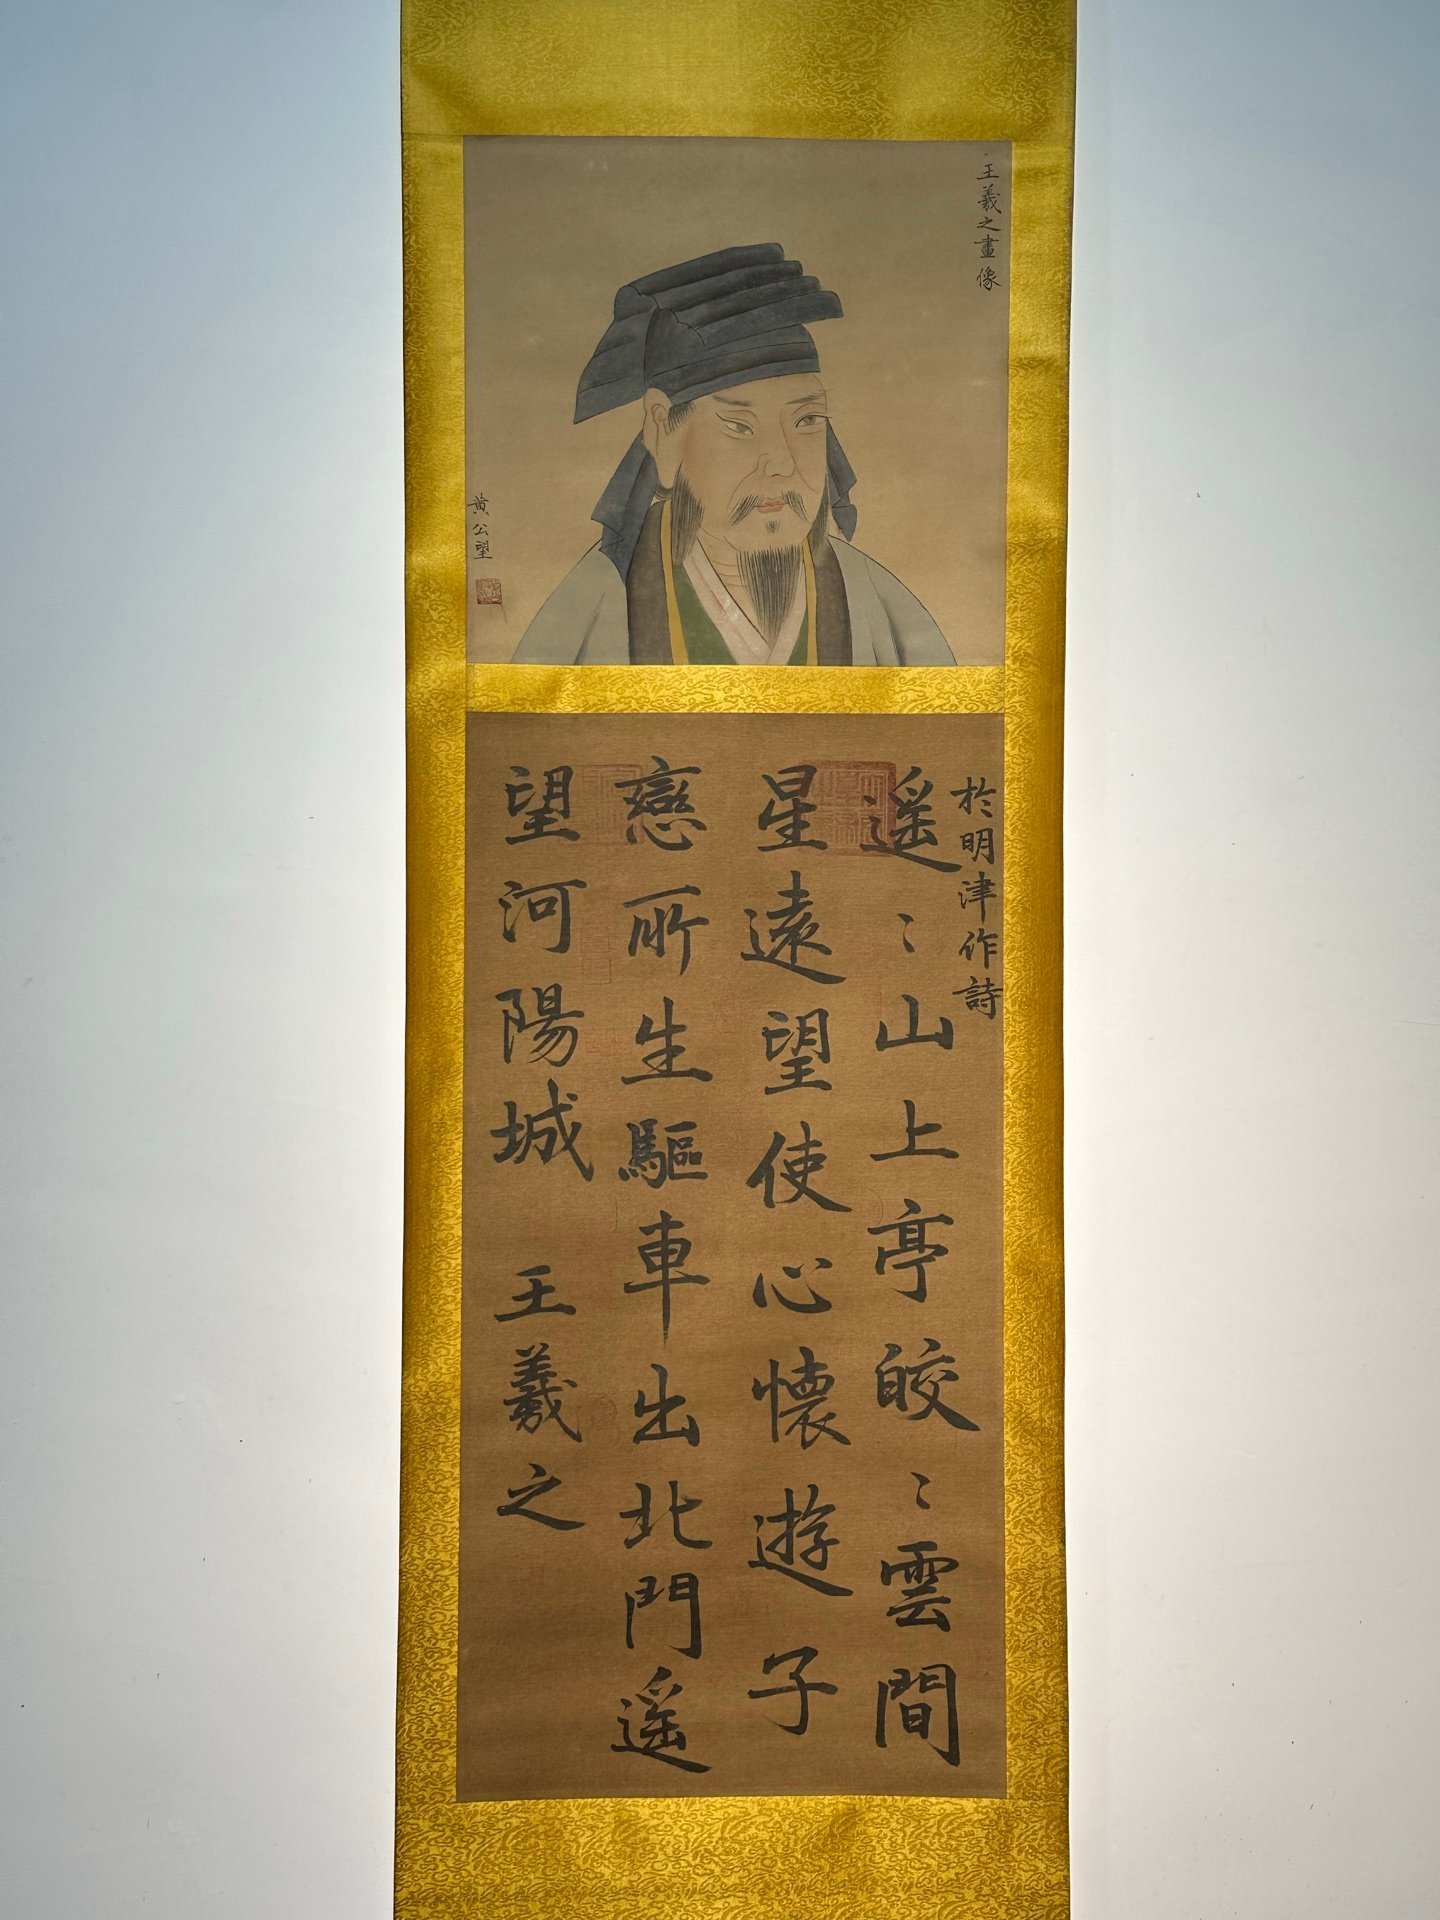 王羲之畫像
黃公望
於明津作詩
遥〻山上亭皎〻雲間
星遠望使心懷遊子
戀所生驅車出北門遥
望河陽城
王羲之